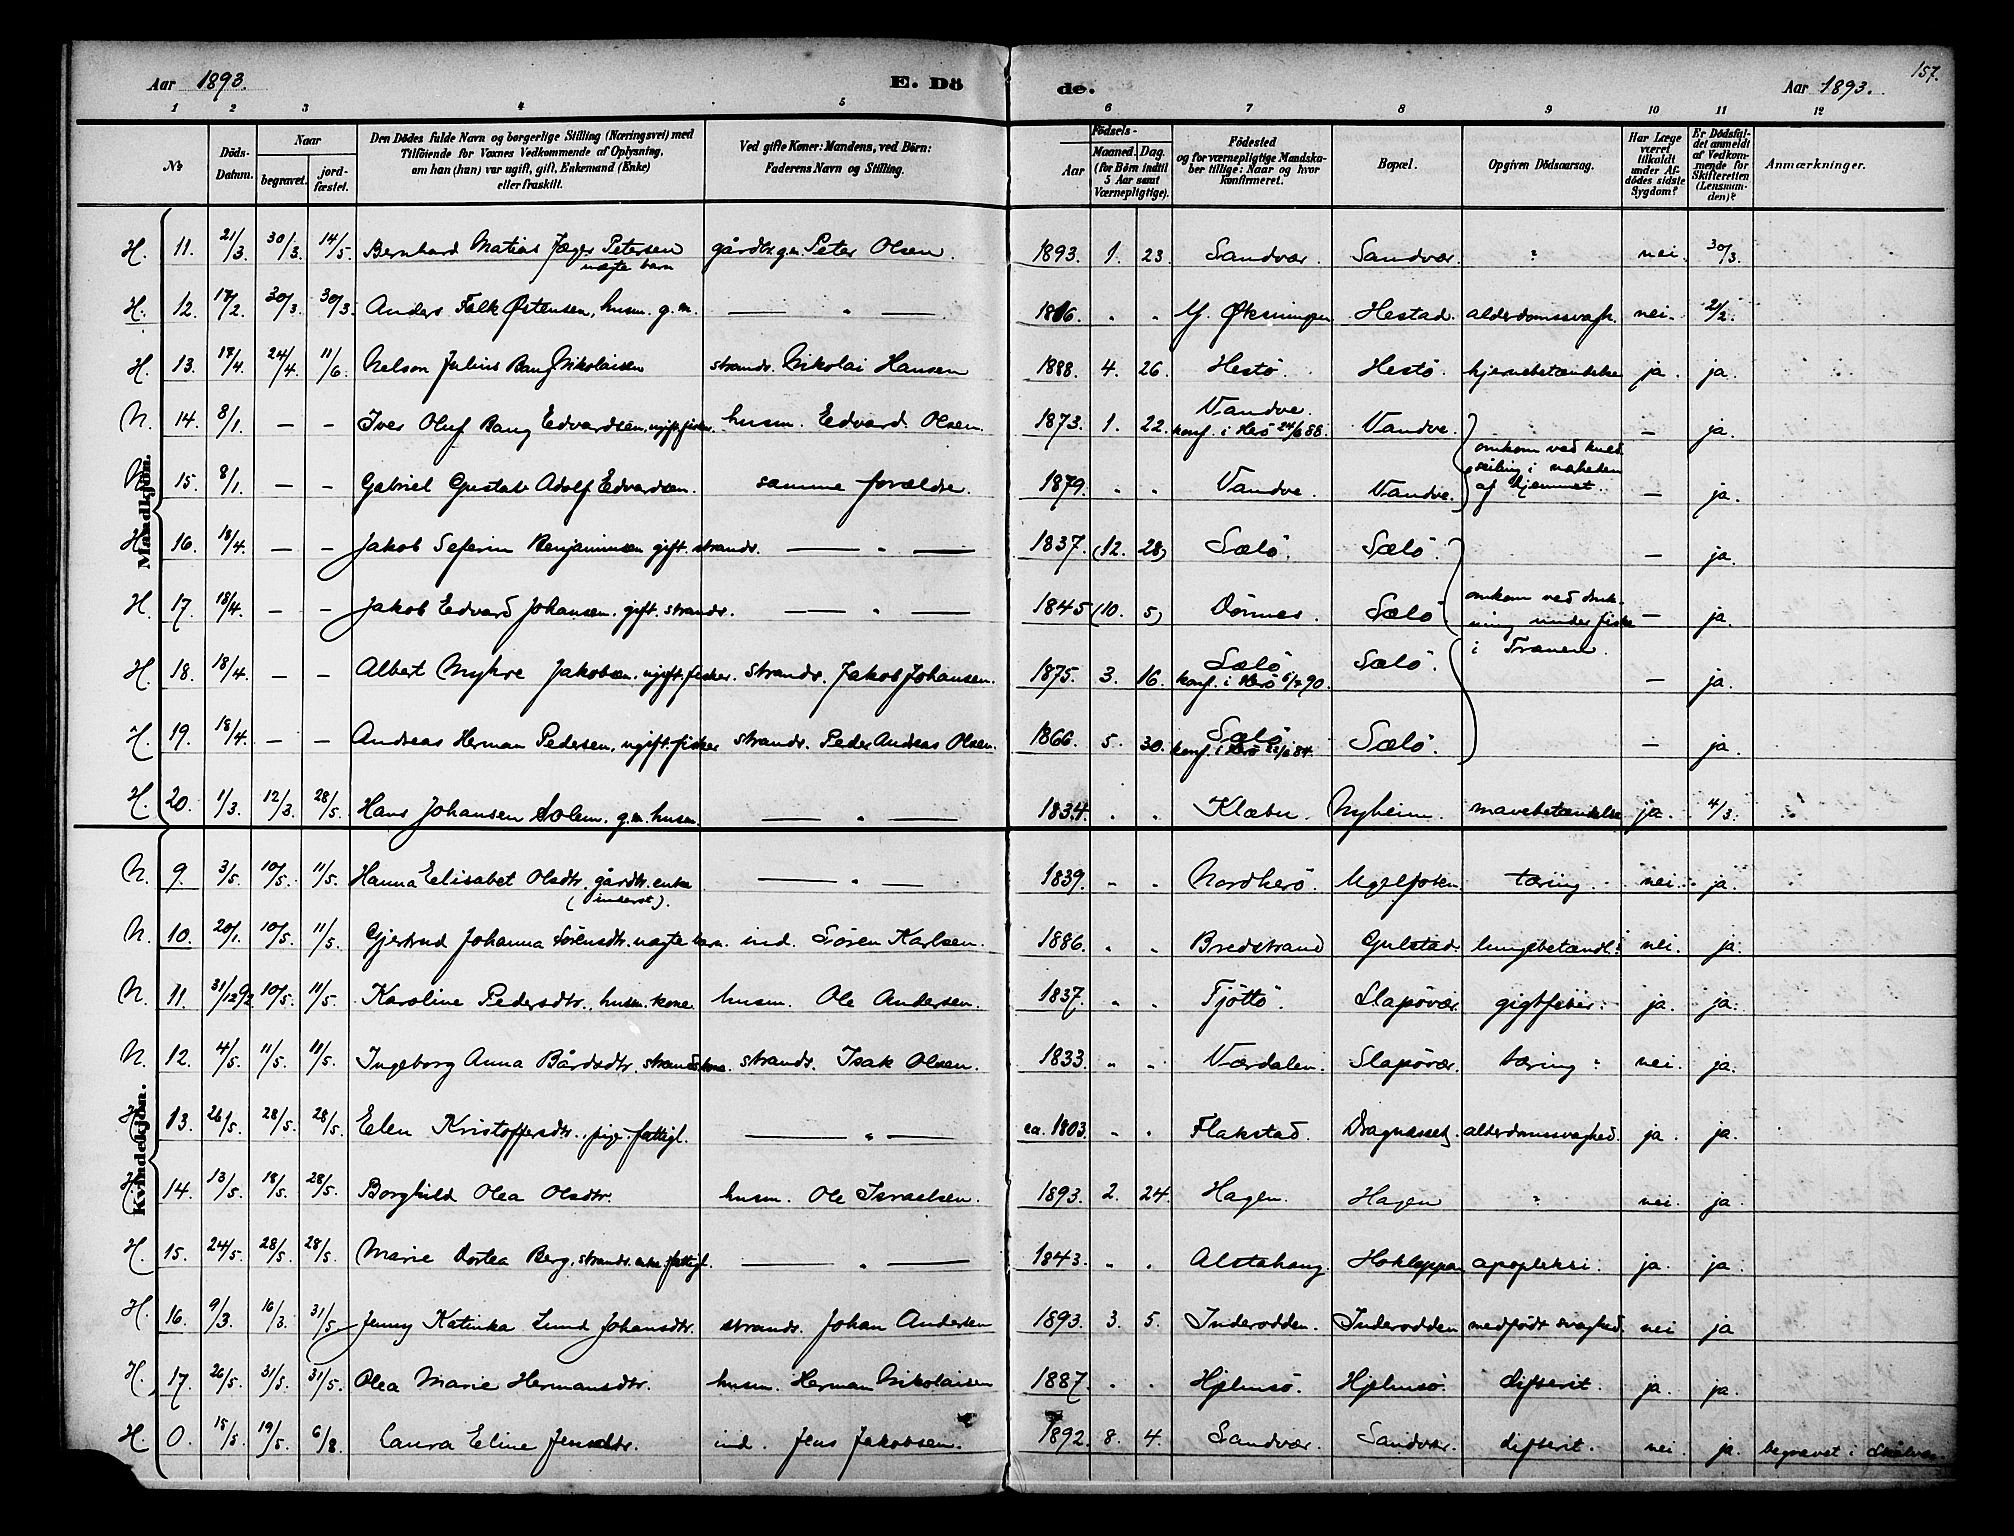 157.
Aar 1893. E. Dö de. Aar 1893.
1 2 3 4 5 6 7 8 9 10 11 12
No Döds-Datum. Naar begravet. jord-fæstet. Den Dödes fulde Navn og borgerlige Stilling (Næringsvei) med Tilföiende for Voxnes Vedkommende af Oplysning, om han (hun) var ugift, gift, Enkemand (Enke) eller fraskilt. Ved gifte Koner: Mandens, ved Börn: Faderens Navn og Stilling. Födsels- Aar Maaned. Dag. (for Börn indtil 5 Aar samt Værnepligtige). Födested og for værnepligtige Mandska-ber tillige: Naar og hvor konfirmeret. Bopæl. Opgiven Dödsaarsag. Har Læge været tilkaldt under Af-dödes sidste Sygdom? Er Dödsfal-det anmeldt af Vedkom-mende for Skifteretten (Lensman-den)? Anmærkninger.
Mandkjön.
H. 11. 21/3 30/3. 14/5. Bernhard Matias Jæger Petersen gårdbr. g.m. Peter Olsen. 1893. 1. 23. Sandvær. Sandvær. " nei. 30/3.
uægte barn
H. 12. 17/2. 30/3. 30/3. Anders Falk Östensen, husm. g.m. — " — 1816. " " Y. Öksningen Hestad. alderdomssvagh. nei. 21/2.
H. 13. 17/4. 24/4. 11/6. Nelson Julius Bang Nikolaisen strands. Nikolai Hansen 1888. 4. 26. Hestö. Hestö. hjernebetændelse ja. ja.
N. 14. 8/1. — — Iver Oluf Bang Edvardsen, ugift fisker. husm. Edvard Olsen. 1873. 1. 22. Vandve. konf. i Herö 24/6 88. Vandve. omkom ved kuld- — ja.
N. 15. 8/1. — — Gabriel Gustav Adolf Edvardsen. samme forældre. 1879. " " Vandve. Vandve. seiling i nærheden af hjemmet. — ja.
H. 16. 18/4. — — Jakob Seferin Benjaminsen gift. strands. — " — 1837. (12. 28) Sælö. Sælö. — ja.
H. 17. 18/4. — — Jakob Edvard Johansen. gift. strands. — " — 1845 (10. 5) Dönnes. Sælö omkom ved druk-ning under fiske — ja.
H. 18. 18/4. — — Albert Myhre Jakobsen. ugift. fisker. strands. Jakob Johansen. 1875. 3. 16. Sælö konf. i Herö 6/7 90. Sælö. i Tranen. — ja.
H. 19. 18/4. — — Andreas Herman Pedersen, ugift. fisker strands. Peder Andreas Olsen. 1866. 5. 30. Sælö konf. i Herö 22/6 84. Sælö. — ja.
H. 20. 1/3. 12/3. 28/5. Hans Johansen Solem. g.m. husm. — " — 1834. " " Klæbu. Nyheim. mavebetændelse ja. 4/3.
Kvindekjön.
N. 9. 3/5. 10/5. 11/5. Hanna Elisabet Olsdtr. gårdbr. enke — " — 1839. " " Nordherö. tæring. nei. ja.
(inderst).
N. 10. 20/1. 10/5. 11/5. Gjertrud Johanna Sörensdtr. uægte barn. ind. Sören Karlsen. 1886. " " Bredstrand Gulstad. lungebetændl. nei. ja.
N. 11. 31/12 92 10/5. 11/5. Karoline Pedersdtr., husm. kone. husm. Ole Andersen. 1837. " " Tjöttö. Slapövær. gigtfeber. ja. ja.
N. 12. 4/5. 11/5. 11/5. Ingeborg Anna Bårdsdtr. strands. kone. strands. Isak Olsen. 1833. " " Værdalen. Slapövær. tæring nei. ja.
H. 13. 26/5. 28/5. 28/5. Elen Kristoffersdtr., pige. fattigl. — " — ca. 1803. " " Flakstad. Dragnæsset. alderdomssvaghed. ja. ja.
H. 14. 13/5. 18/5. 28/5. Borghild Olea Olsdtr. husm. Ole Israelsen. 1893. 2. 24. Hagen. Hagen " nei. ja.
H. 15. 24/5. 28/5. 28/5. Marie Dortea Berg. strands. enke fattigl. — " — 1843. " " Alstahaug. apopleksi. ja. ja.
H. 16. 9/3. 16/3. 31/5. Jenny Katinka Lund Johansdtr. strands. Johan Andersen 1893. 3. 5. Inderodden. Inderodden medfödt svaghed. nei ja
H. 17. 26/5. 31/5. 31/5. Olea Marie Hermansdtr. husm. Herman Nikolaisen 1887. " " Hjelmsö. Hjelmsö. difterit. ja. ja.
H. 0. 15/5. 19/5. 6/8. Laura Eline Jensdtr. ind. Jens Jakobsen. 1892. 8. 4. Sandvær. Sandvær. difterit. nei. ja. begravet i